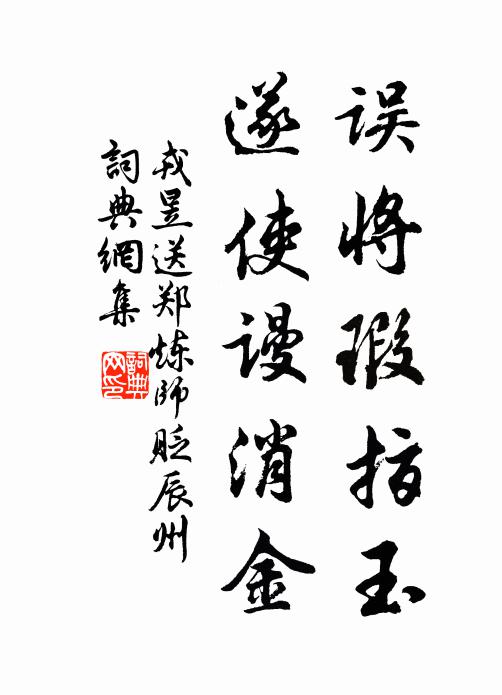 误将瑕指玉
遂使谩消金
戎昱送郑炼师贬辰州
詞典網集
詞典网印